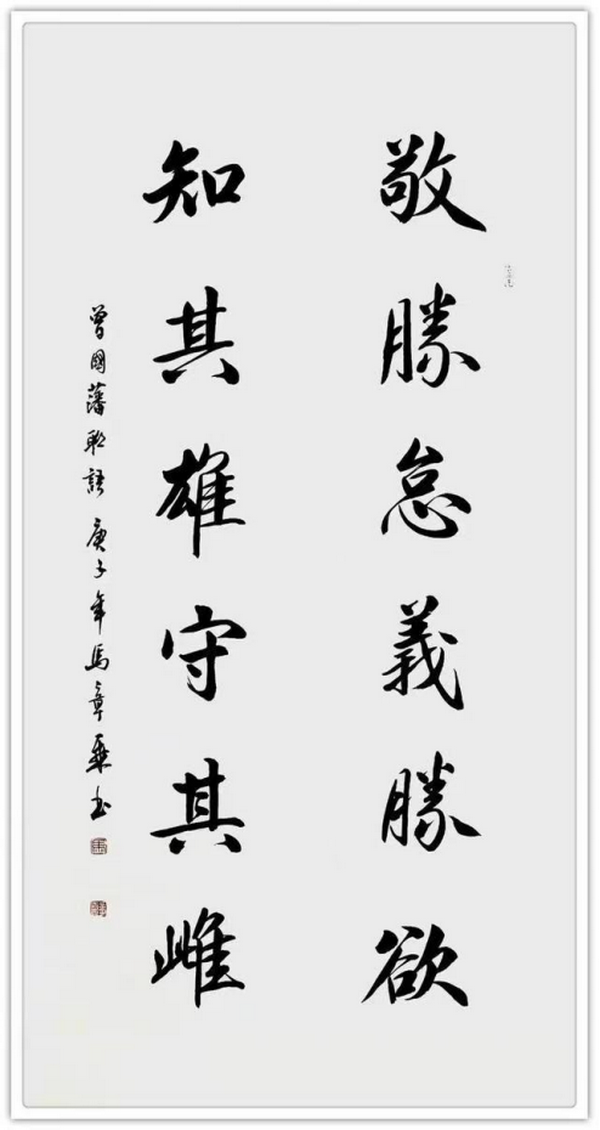 敬勝怠義勝欲
知其雄守其雌
曾國藩聯語 庚子年馬章乗書